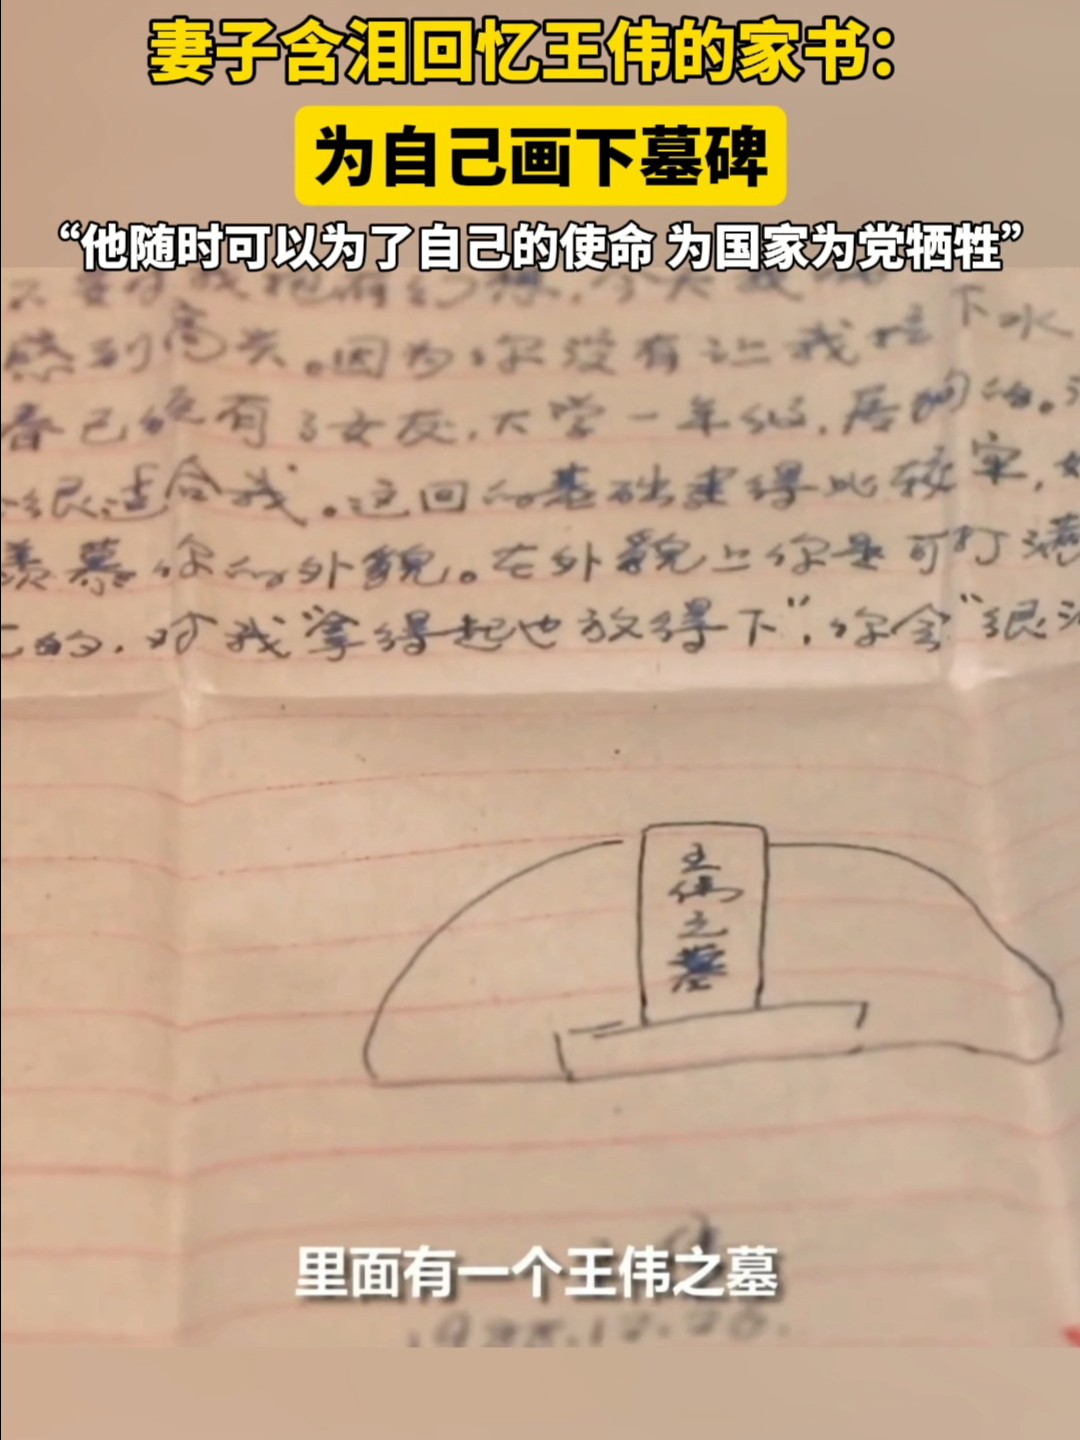 妻子含泪回忆王伟的家书：
为自己画下墓碑
“他随时可以为了自己的使命 为国家为党牺牲”
感到高兴。因为你没有让我拉下水
春已经有了女友，大学一年级，
很适合我。这回的基础建得比较牢，
羡慕你的外貌。在外貌上你是可打满
的，对我“拿得起也放得下”，你会“很
王伟之墓
里面有一个王伟之墓